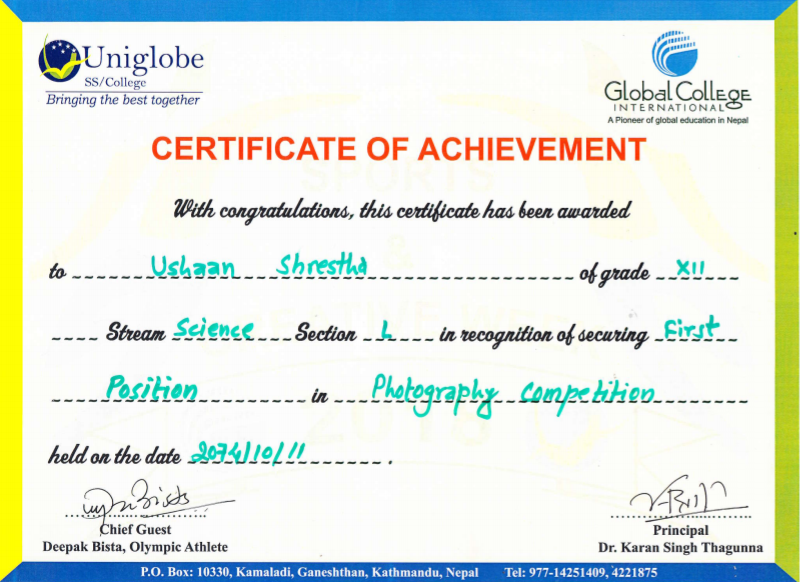 Uniglobe
SS/College
Bringing the best together
Global College
INTERNATIONAL
A Pioneer of global education in Nepal
CERTIFICATE OF ACHIEVEMENT
With congratulations, this certificate has been awarded
to Ushaan Shrestha of grade XII
Stream Science Section L in recognition of securing First
Position in Photography Competition
held on the date 2074/10/11.
Chief Guest
Deepak Bista, Olympic Athlete
Principal
Dr. Karan Singh Thagunna
P.O. Box: 10330, Kamaladi, Ganeshthan, Kathmandu, Nepal Tel: 977-14251409, 4221875